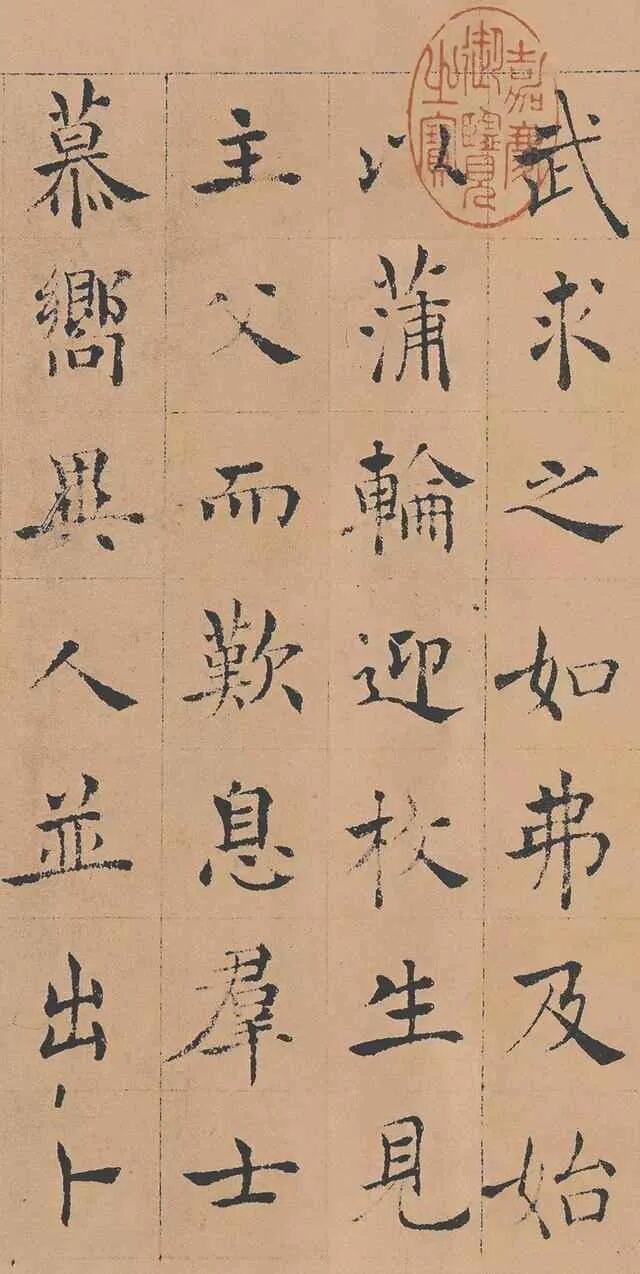 武求之如弗及始
以蒲輪迎枚生見
主父而歎息羣士
慕嚮異人並出卜
嘉慶御覽之寶